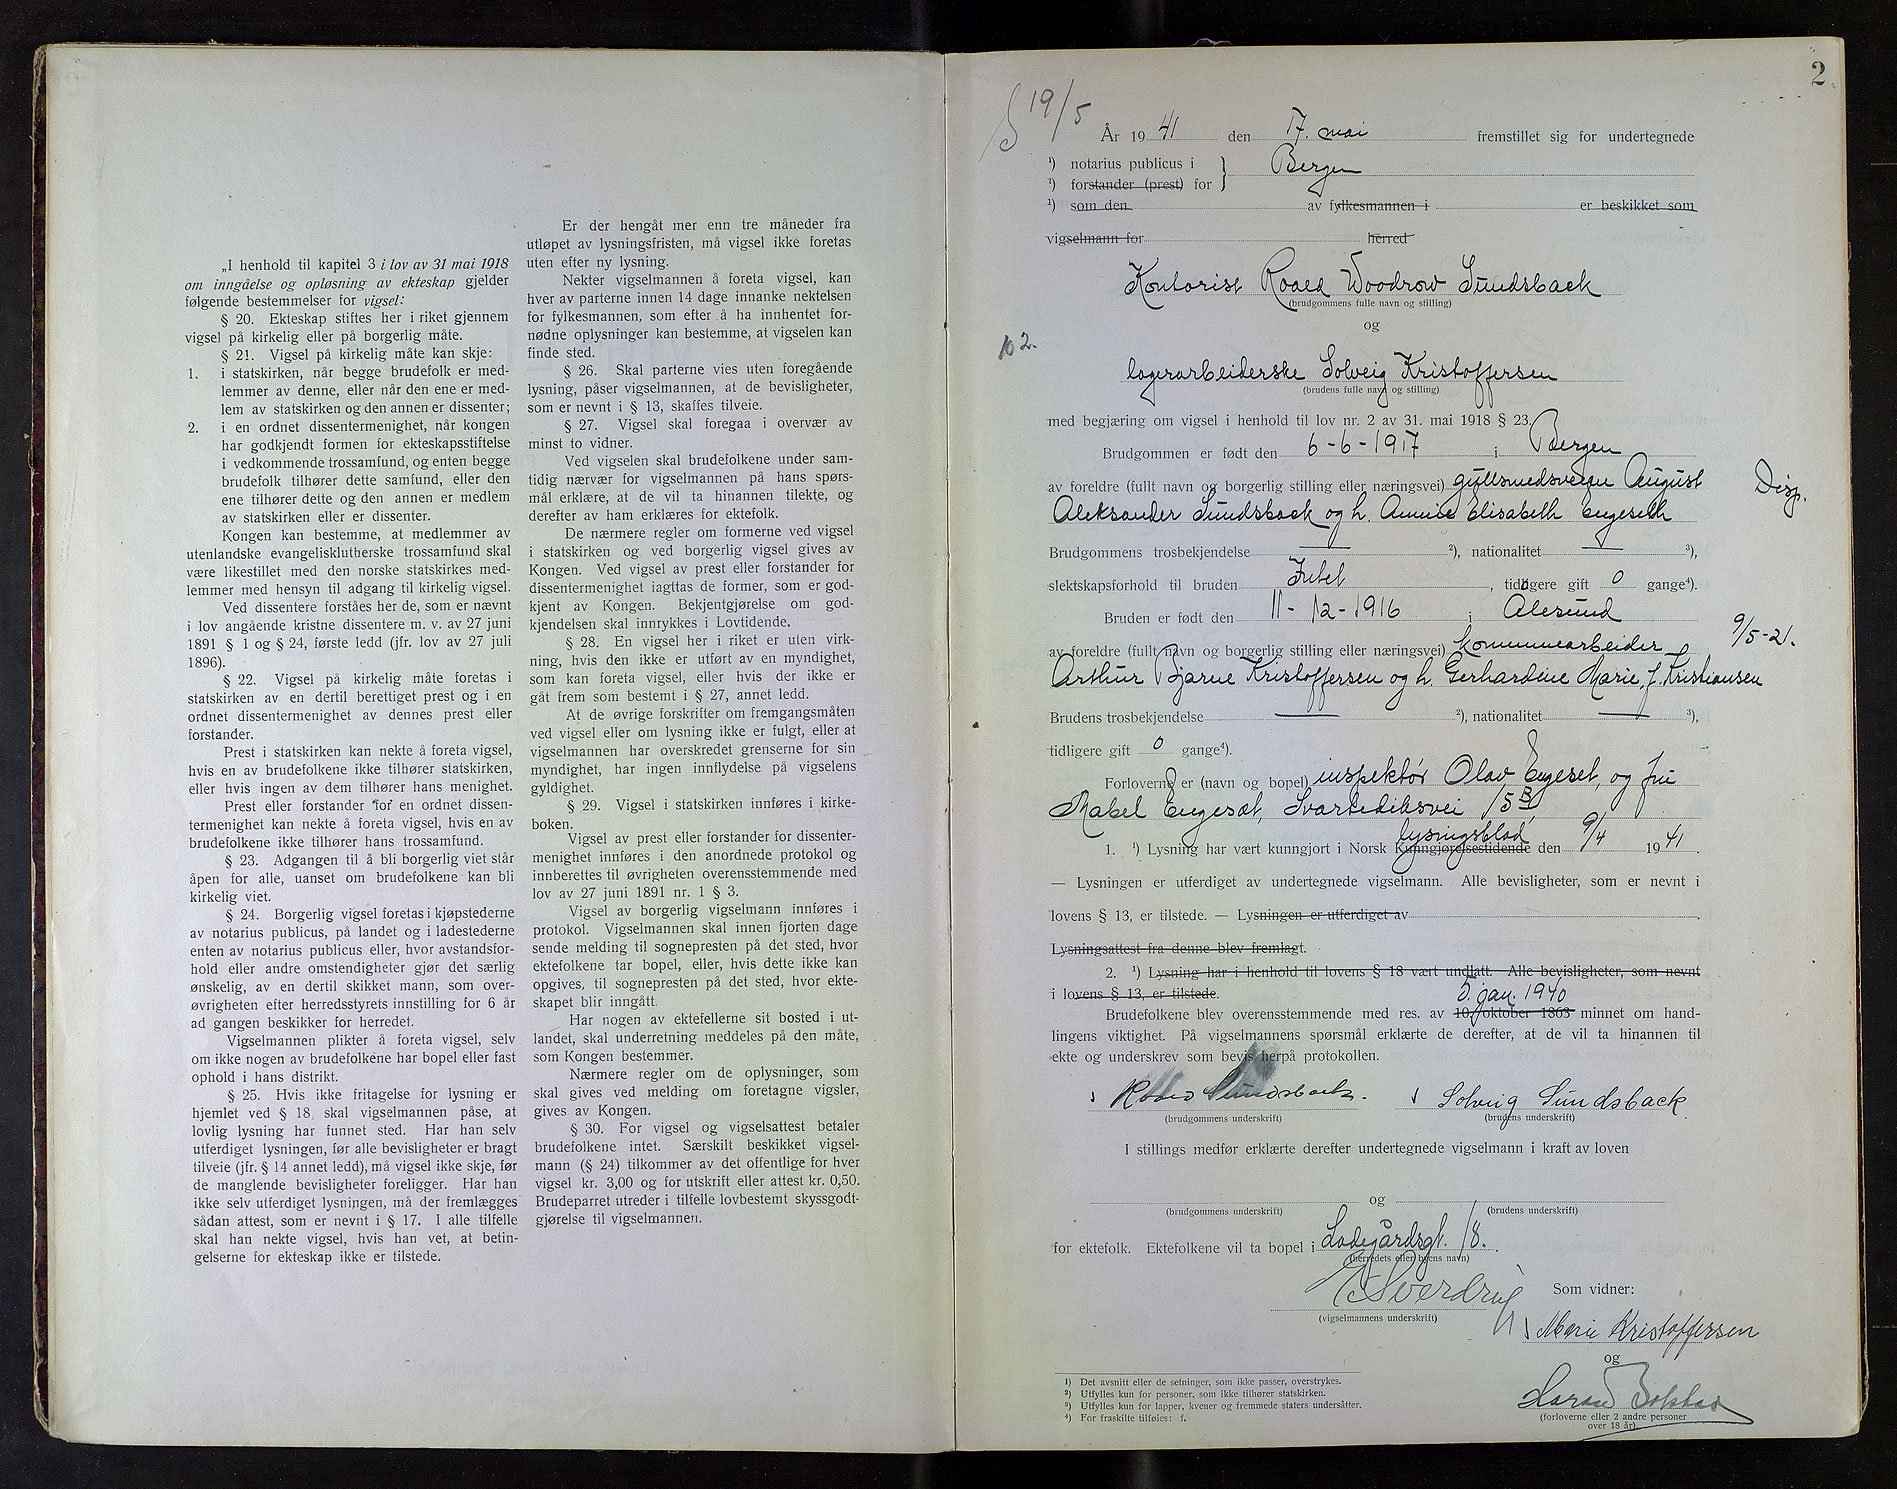 „I henhold til kapitel 3 i lov av 31 mai 1918
om inngåelse og opløsning av ekteskap gjelder
følgende bestemmelser for vigsel:
§ 20. Ekteskap stiftes her i riket gjennem
vigsel på kirkelig eller på borgerlig måte.
§ 21. Vigsel på kirkelig måte kan skje:
1. i statskirken, når begge brudefolk er med-
lemmer av denne, eller når den ene er med-
lem av statskirken og den annen er dissenter;
2. i en ordnet dissentermenighet, når kongen
har godkjendt formen for ekteskapsstiftelse
i vedkommende trossamfund, og enten begge
brudefolk tilhører dette samfund, eller den
ene tilhører dette og den annen er medlem
av statskirken eller er dissenter.
Kongen kan bestemme, at medlemmer av
utenlandske evangelisklutherske trossamfund skal
være likestillet med den norske statskirkes med-
lemmer med hensyn til adgang til kirkelig vigsel.
Ved dissentere forståes her de, som er nævnt
i lov angående kristne dissentere m. v. av 27 juni
1891 § 1 og § 24, første ledd (jfr. lov av 27 juli
1896).
§ 22. Vigsel på kirkelig måte foretas i
statskirken av en dertil berettiget prest og i en
ordnet dissentermenighet av dennes prest eller
forstander.
Prest i statskirken kan nekte å foreta vigsel,
hvis en av brudefolkene ikke tilhører statskirken,
eller hvis ingen av dem tilhører hans menighet.
Prest eller forstander for en ordnet dissen-
termenighet kan nekte å foreta vigsel, hvis en av
brudefolkene ikke tilhører hans trossamfund.
§ 23. Adgangen til å bli borgerlig viet står
åpen for alle, uanset om brudefolkene kan bli
kirkelig viet.
§ 24. Borgerlig vigsel foretas i kjøpstederne
av notarius publicus, på landet og i ladestederne
enten av notarius publicus eller, hvor avstandsfor-
hold eller andre omstendigheter gjør det særlig
ønskelig, av en dertil skikket mann, som over-
øvrigheten efter herredsstyrets innstilling for 6 år
ad gangen beskikker for herredet.
Vigselmannen plikter å foreta vigsel, selv
om ikke nogen av brudefolkene har bopel eller fast
ophold i hans distrikt.
§ 25. Hvis ikke fritagelse for lysning er
hjemlet ved § 18 skal vigselmannen påse, at
lovlig lysning har funnet sted. Har han selv
utferdiget lysningen, før alle bevisligheter er bragt
tilveie (jfr. § 14 annet ledd), må vigsel ikke skje, før
de manglende bevisligheter foreligger. Har han
ikke selv utferdiget lysningen, må der fremlægges
sådan attest, som er nevnt i § 17. I alle tilfelle
skal han nekte vigsel, hvis han vet, at betin-
gelserne for ekteskap ikke er tilstede.
Er der hengåt mer enn tre måneder fra
utløpet av lysningsfristen, må vigsel ikke foretas
uten efter ny lysning.
Nekter vigselmannen å foreta vigsel, kan
hver av parterne innen 14 dage innanke nektelsen
for fylkesmannen, som efter å ha innhentet for-
nødne oplysninger kan bestemme, at vigselen kan
finde sted.
§ 26. Skal parterne vies uten foregående
lysning, påser vigselmannen, at de bevisligheter,
som er nevnt i § 13, skaffes tilveie.
§ 27. Vigsel skal foregaa i overvær av
minst to vidner.
Ved vigselen skal brudefolkene under sam-
tidig nærvær for vigselmannen på hans spørs-
mål erklære, at de vil ta hinannen tilekte, og
derefter av ham erklæres for ektefolk.
De nærmere regler om formerne ved vigsel
i statskirken og ved borgerlig vigsel gives av
Kongen. Ved vigsel av prest eller forstander for
dissentermenighet iagttas de former, som er god-
kjent av Kongen. Bekjentgjørelse om god-
kjendelsen skal innrykkes i Lovtidende.
§ 28. En vigsel her i riket er uten virk-
ning, hvis den ikke er utført av en myndighet,
som kan foreta vigsel, eller hvis der ikke er
gåt frem som bestemt i § 27, annet ledd.
At de øvrige forskrifter om fremgangsmåten
ved vigsel eller om lysning ikke er fulgt, eller at
vigselmannen har overskredet grenserne for sin
myndighet, har ingen innflydelse på vigselens
gyldighet.
§ 29. Vigsel i statskirken innføres i kirke-
boken.
Vigsel av prest eller forstander for dissenter-
menighet innføres i den anordnede protokol og
innberettes til øvrigheten overensstemmende med
lov av 27 juni 1891 nr. 1 § 3.
Vigsel av borgerlig vigselmann innføres i
protokol. Vigselmannen skal innen fjorten dage
sende melding til sognepresten på det sted, hvor
ektefolkene tar bopel, eller, hvis dette ikke kan
opgives, til sognepresten på det sted, hvor ekte-
skapet blir inngått.
Har nogen av ektefellerne sit bosted i ut-
landet, skal underretning meddeles på den måte,
som Kongen bestemmer.
Nærmere regler om de oplysninger, som
skal gives ved melding om foretagne vigsler,
gives av Kongen.
§ 30. For vigsel og vigselsattest betaler
brudefolkene intet. Særskilt beskikket vigsel-
mann (§ 24) tilkommer av det offentlige for hver
vigsel kr. 3,00 og for utskrift eller attest kr. 0,50.
Brudeparret utreder i tilfelle lovbestemt skyssgodt-
gjørelse til vigselmannen.
2
19/5
År 1941 den 17. mai fremstillet sig for undertegnede
¹) notarius publicus i } Bergen
¹) forstander (prest) for
¹) som den av fylkesmannen i er beskikket som
vigselmann for herred
Kontorist Roald Woodrow Sundsback
(brudgommens fulle navn og stilling)
og
102.
lagerarbeiderske Solveig Kristoffersen
(brudens fulle navn og stilling)
med begjæring om vigsel i henhold til lov nr. 2 av 31. mai 1918 § 23.
Brudgommen er født den 6-6-1917 i Bergen
av foreldre (fullt navn og borgerlig stilling eller næringsvei) gullsmedsvenn August
Disp.
Aleksander Sundsback og h. Annie Elisabeth Engeseth
Brudgommens trosbekjendelse — ²), nationalitet — ³),
slektskapsforhold til bruden Intet, tidligere gift 0 gange⁴).
Bruden er født den 11-12-1916 i Ålesund
9/5-21.
av foreldre (fullt navn og borgerlig stilling eller næringsvei) kommunearbeider
Arthur Bjarne Kristoffersen og h. Gerhardine Marie, f. Kristiansen
Brudens trosbekjendelse — ²), nationalitet — ³),
tidligere gift 0 gange⁴).
Forloverne er (navn og bopel) inspektør Olav Engeset, og fru
Mabel Engeset, Svartediksvei 15 B,
lysningsblad
1. ¹) Lysning har vært kunngjort i Norsk Kunngjørelsestidende den 9/4 1941.
— Lysningen er utferdiget av undertegnede vigselmann. Alle bevisligheter, som er nevnt i
lovens § 13, er tilstede. — Lysningen er utferdiget av
Lysningsattest fra denne blev fremlagt.
2. ¹) Lysning har i henhold til lovens § 18 vært undlatt. Alle bevisligheter, som nevnt
i lovens § 13, er tilstede.
5. jan. 1940
Brudefolkene blev overensstemmende med res. av 10 oktober 1863 minnet om hand-
lingens viktighet. På vigselmannens spørsmål erklærte de derefter, at de vil ta hinannen til
ekte og underskrev som bevis herpå protokollen.
Roald Sundsback. Solveig Sundsback
(brudgommens underskrift) (brudens underskrift)
I stillings medfør erklærte derefter undertegnede vigselmann i kraft av loven
og
(brudgommens underskrift) (brudens underskrift)
for ektefolk. Ektefolkene vil ta bopel i Ladegårdsgt. 18.
(herredets eller byens navn)
Sverdrup
Som vidner:
(vigselmannens underskrift)
Marie Kristoffersen
og
(forloverne eller 2 andre personer
over 18 år)
¹) Det avsnitt eller de setninger, som ikke passer, overstrykes.
²) Utfylles kun for personer, som ikke tilhører statskirken.
³) Utfylles kun for lapper, kvener og fremmede staters undersåtter.
⁴) For fraskilte tilføies: f.